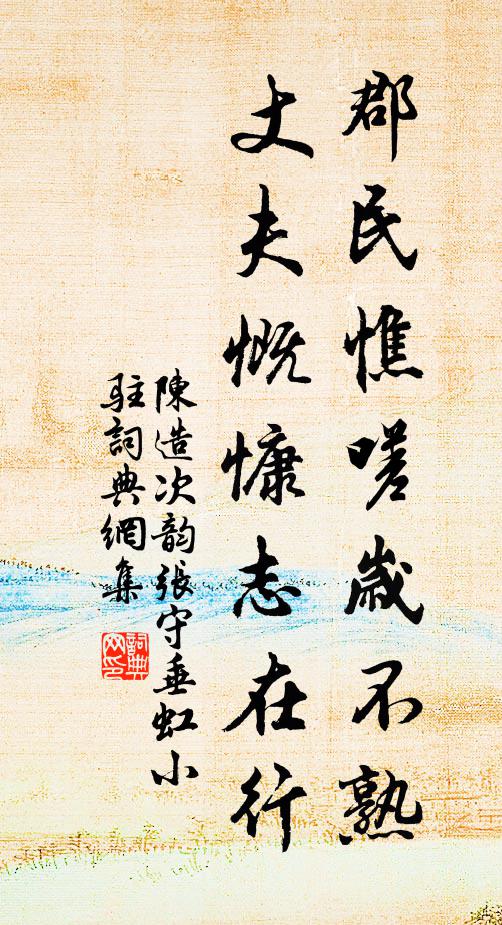 郡民憔嗟歲不熟
丈夫慨慷志在行
陳造次韵張守垂虹小
駐詞典網集
詞典
网印